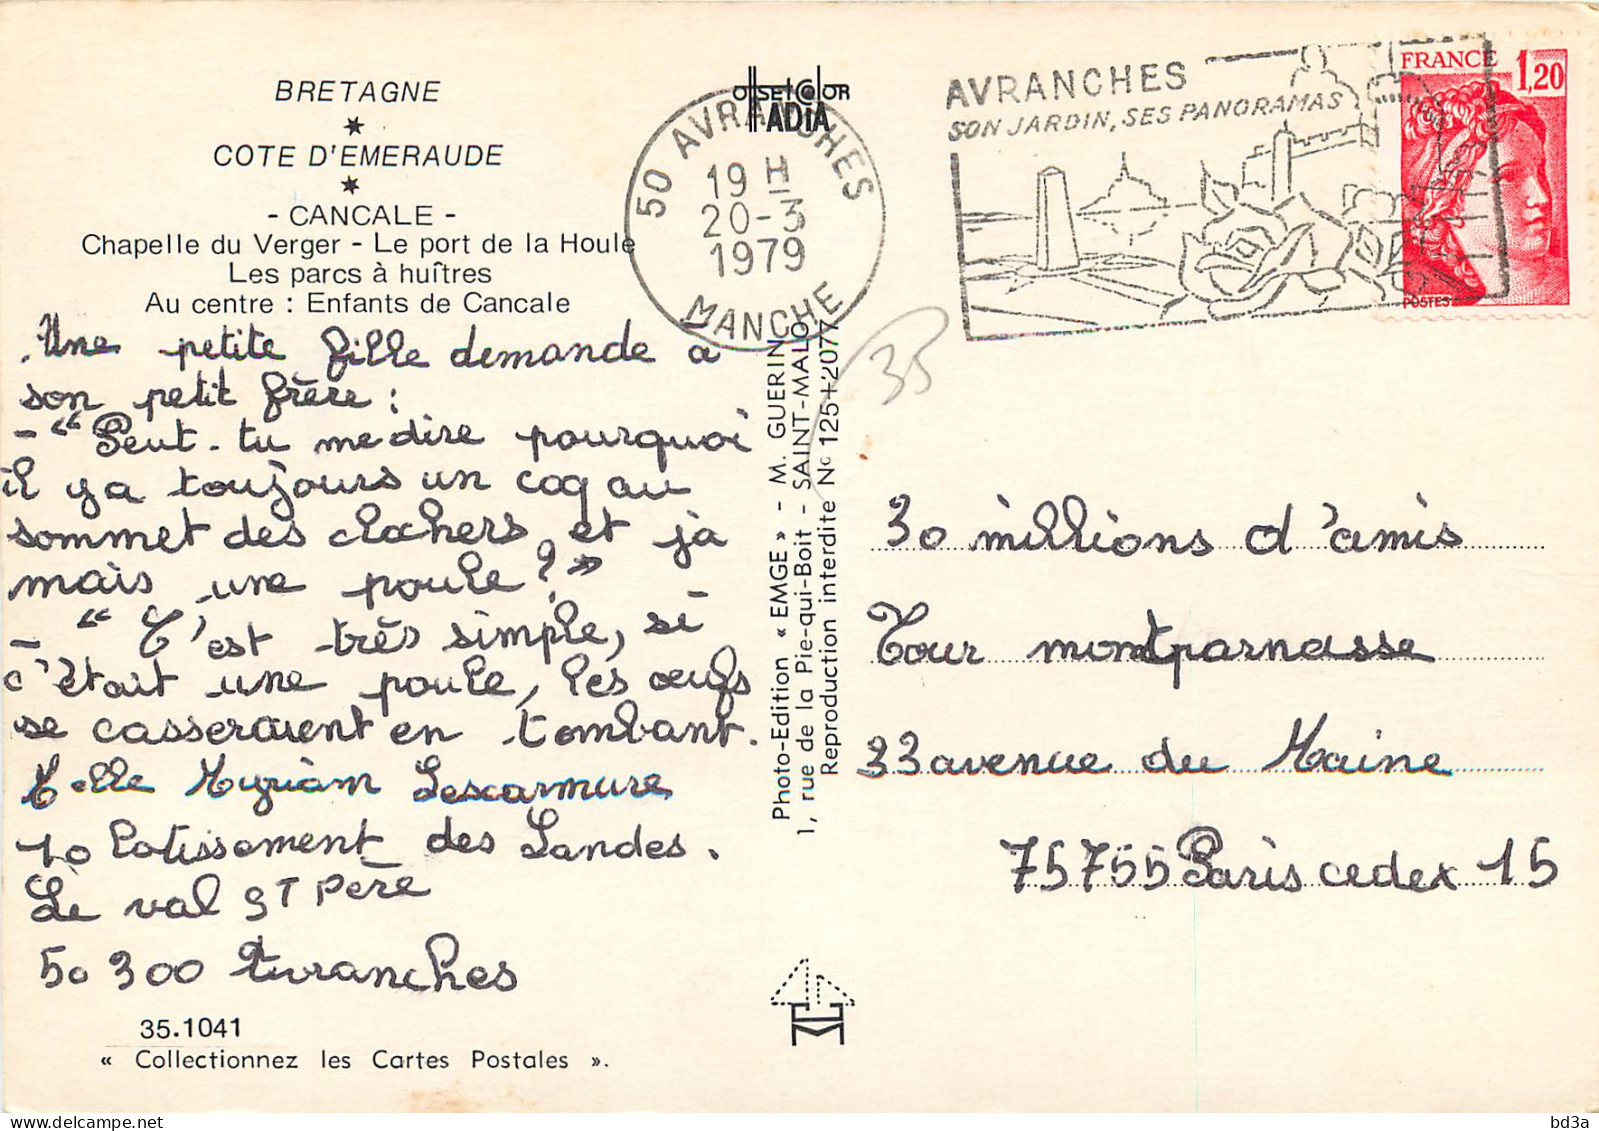 BRETAGNE
COTE D'EMERAUDE
- CANCALE -
Chapelle du Verger - Le port de la Houle
Les parcs à huîtres
Au centre : Enfants de Cancale
Une petite fille demande a
son petit frère :
- " Peut-tu me dire pourquoi
il y a toujours un coq au
sommet des clochers, et ja
mais une poule ? "
- " C'est très simple, si
c'était une poule, les œufs
se casseraient en tombant.
Melle Myriam Lescarmure
10 lotissement des Landes.
Le val ST Père
50 300 Avranches
35.1041
« Collectionnez les Cartes Postales ».
OffSETCOLOR
ADiA
50 AVRANCHES
19 H
20-3
1979
MANCHE
Photo-Edition « EMGE » - M. GUERIN
1, rue de la Pie-qui-Boit - SAINT-MALO
Reproduction interdite N° 125+2077
35
AVRANCHES
SON JARDIN, SES PANORAMAS
FRANCE 1,20
POSTES
30 millions d'amis
Tour montparnasse
33 avenue du Maine
75755 Paris cedex 15
bd3a
www.delcampe.net